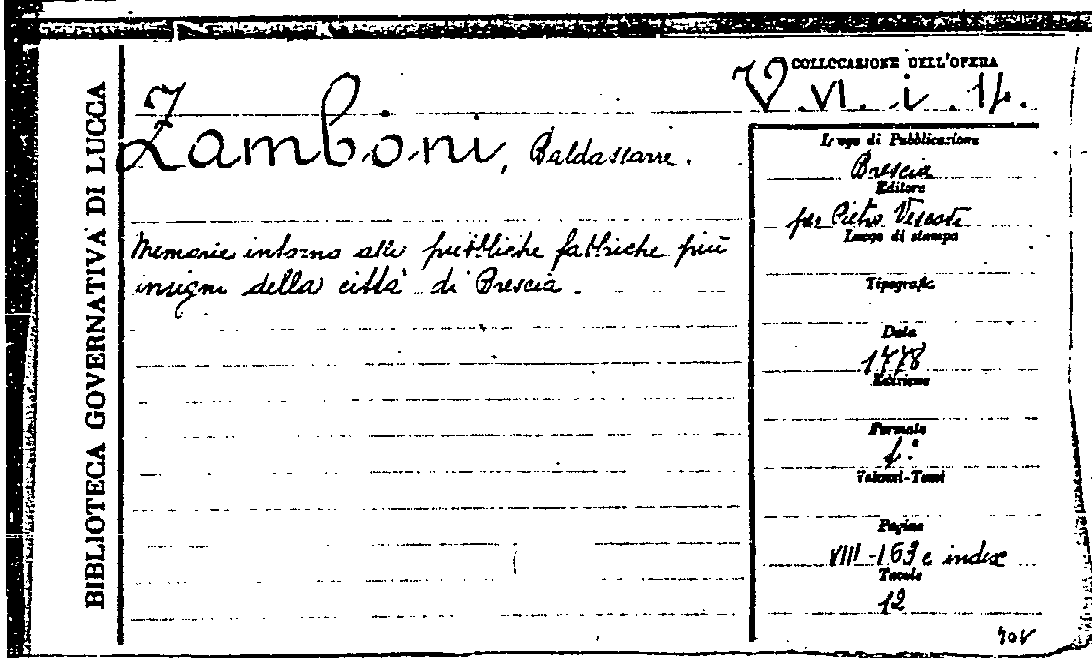 BIBLIOTECA GOVERNATIVA DI LUCCA
COLLOCAZIONE DELL'OPERA
V. VI. i. 14.
Zamboni, Baldassarre.
Memorie intorno alle pubbliche fabbriche più
insigni della città di Brescia.
Luogo di Pubblicazione
Brescia
Editore
per Pietro Vescovi
Luogo di stampa
Tipografic.
Data
1778
Edizione
Formato
f.°
Volumi-Tomi
Pagine
VIII-163 e index
Tavole
12